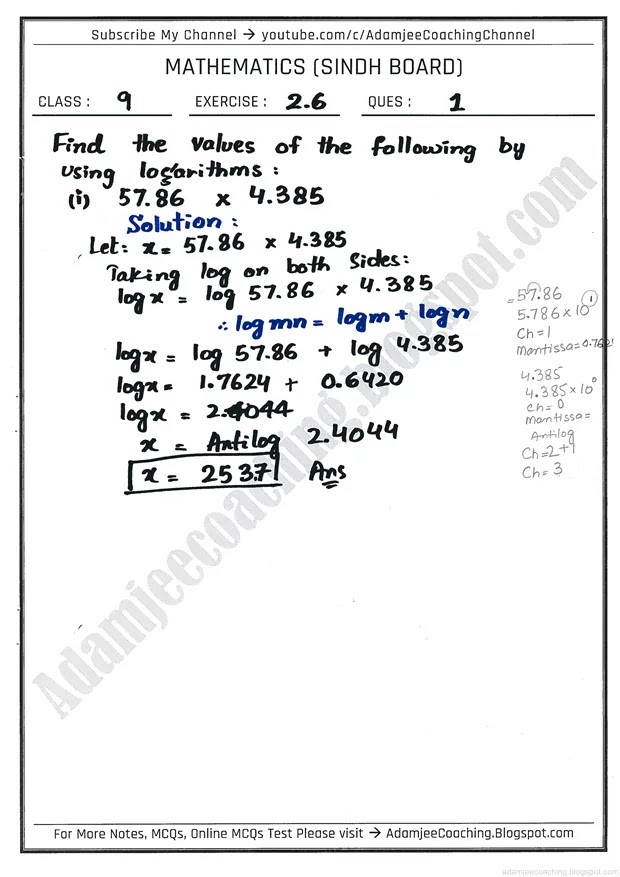 Subscribe My Channel → youtube.com/c/AdamjeeCoachingChannel
MATHEMATICS (SINDH BOARD)
CLASS : 9 EXERCISE : 2.6 QUES : 1
Find the values of the following by
using logarithms :
(i) 57.86 x 4.385
Solution :
Let: x = 57.86 x 4.385
Taking log on both sides:
log x = log 57.86 x 4.385
∴ log mn = log m + log n
log x = log 57.86 + log 4.385
log x = 1.7624 + 0.6420
log x = 2.4044
x = Antilog 2.4044
x = 253.7 Ans
= 57.86
5.786 x 10 1
Ch = 1
Mantissa = 0.762
4.385
4.385 x 10 0
Ch = 0
Mantissa =
Antilog
Ch = 2 + 1
Ch = 3
Adamjeecoaching.blogspot.com
For More Notes, MCQs, Online MCQs Test Please visit → AdamjeeCoaching.Blogspot.com
adamjeecoaching.blogspot.com